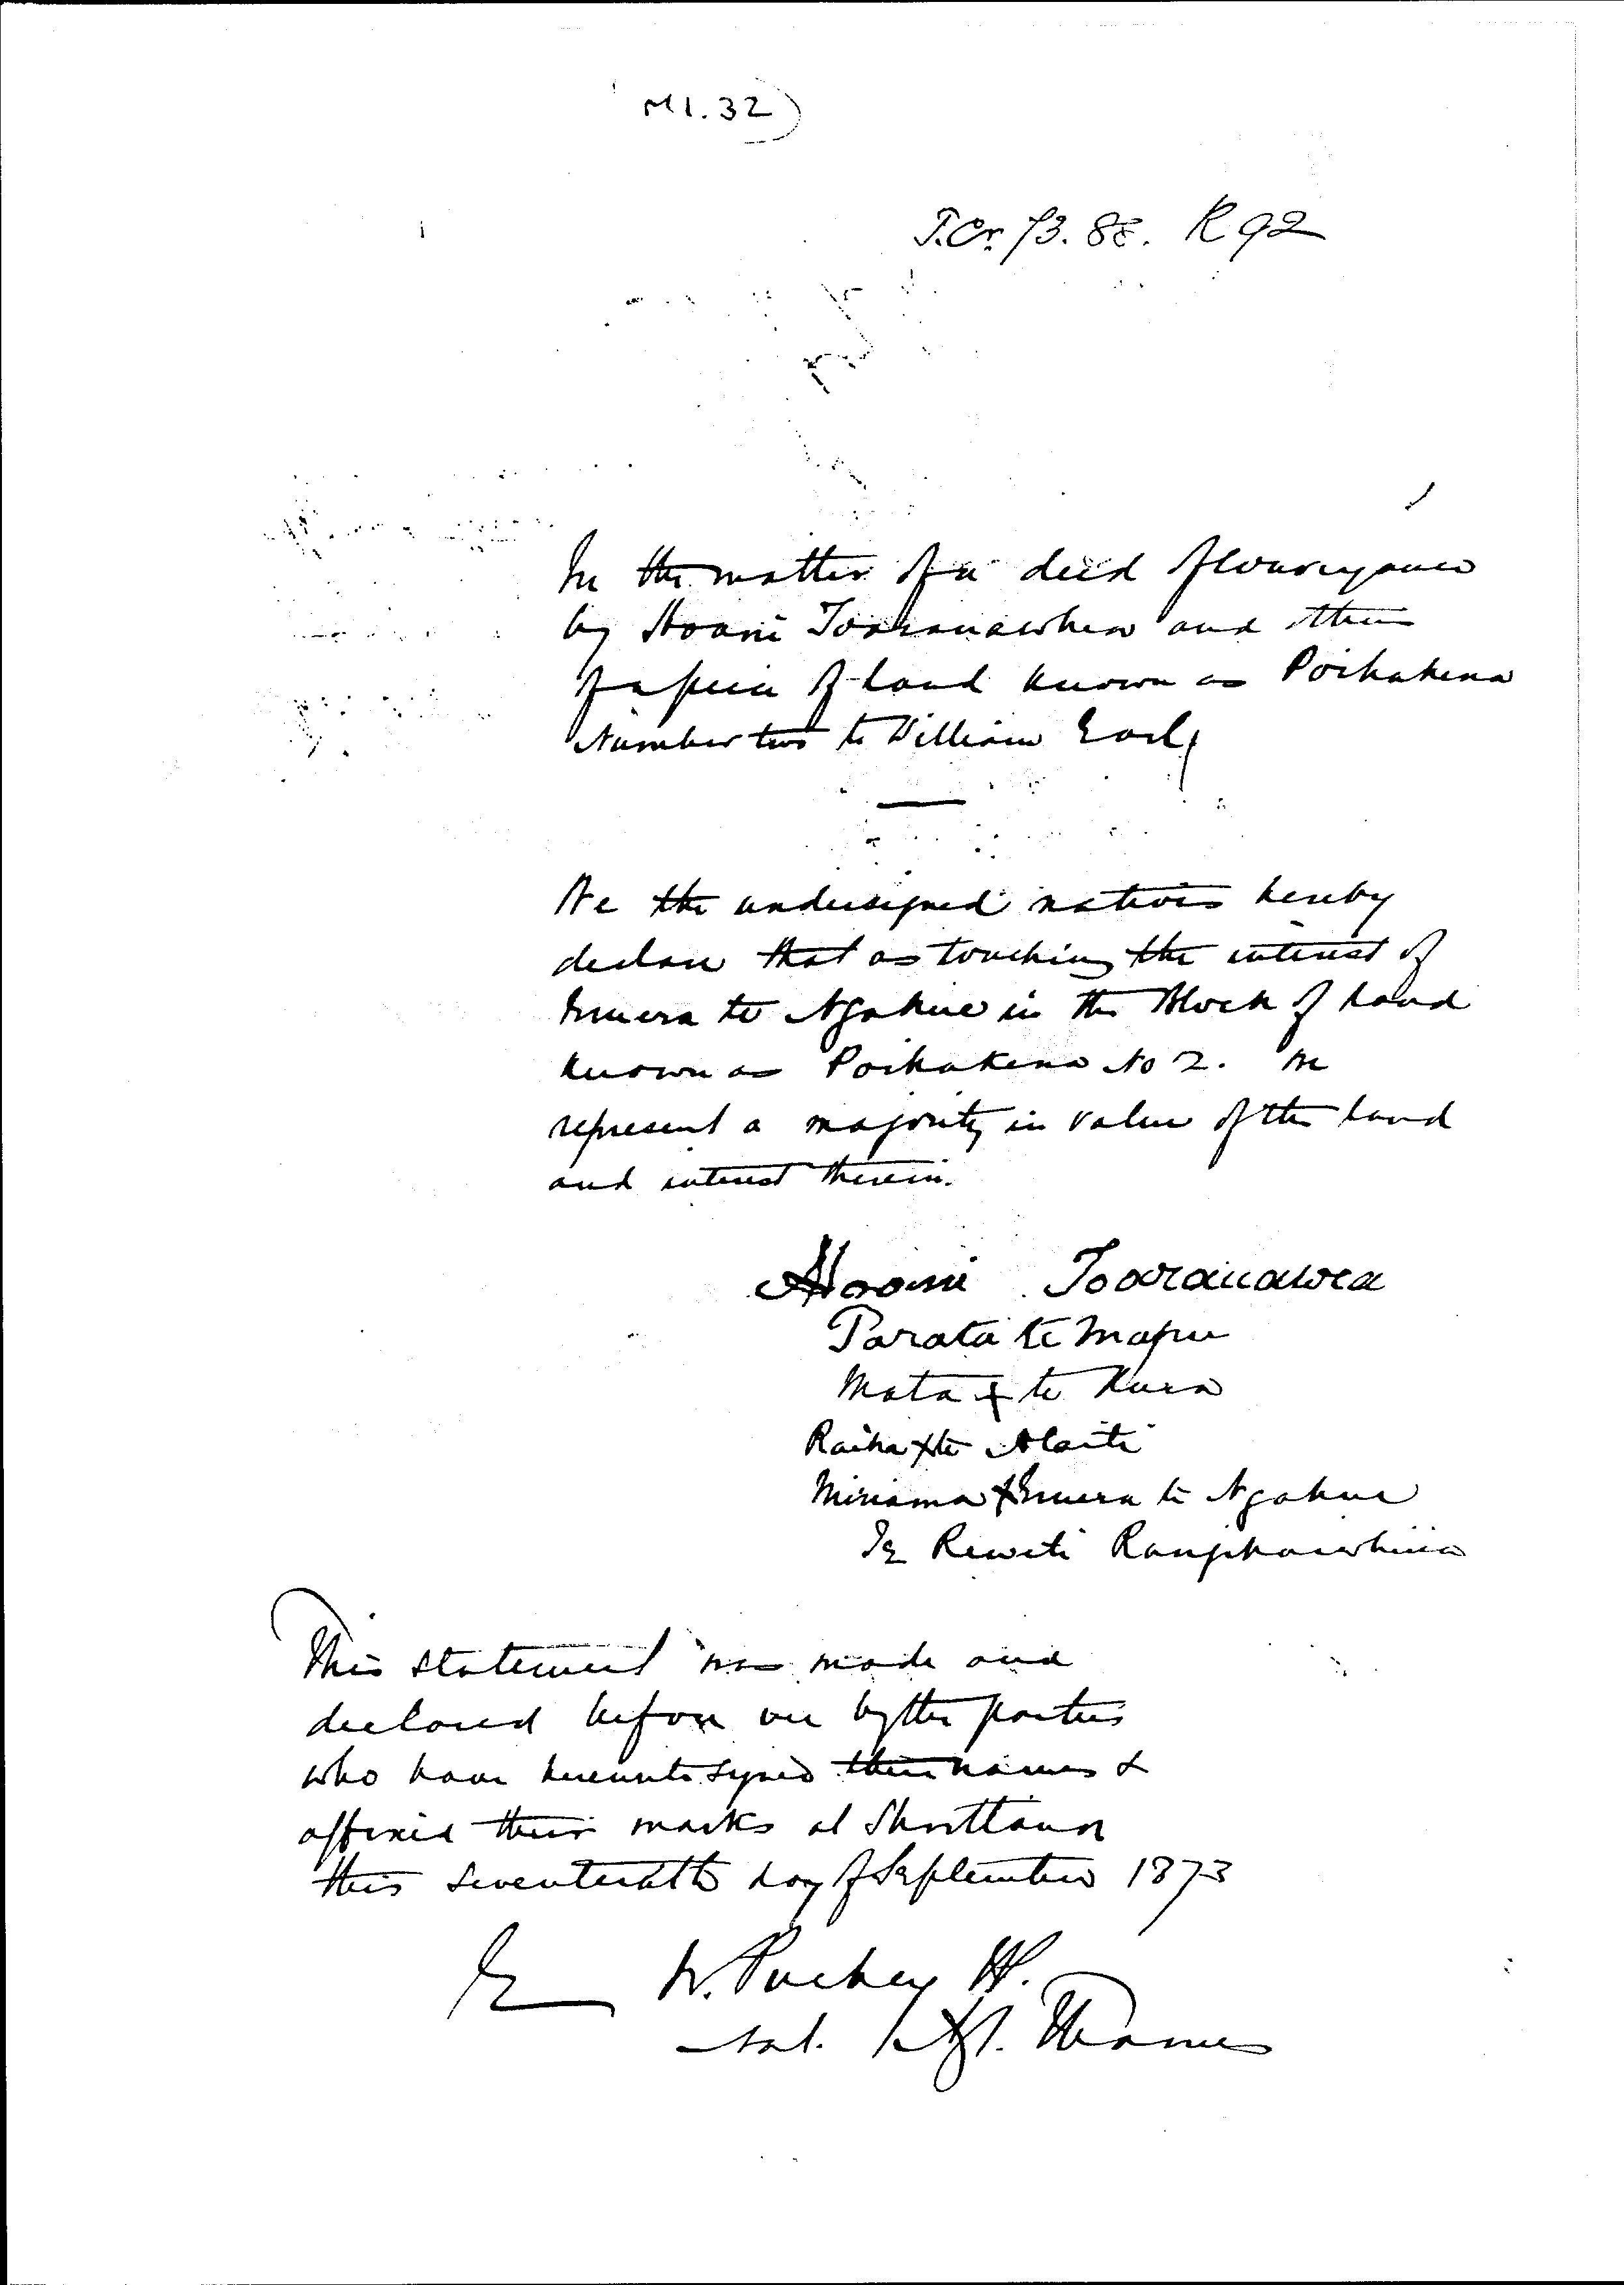 M1.32)
T.Cr. 73. 88. R 92
In the matter of a deed of Conveyance
by Hoani Toaranawhea and others
of a piece of land known as Poikakena
Number two to William Early
We the undersigned natives hereby
declare that as touching the interest of
Emera te Ngahue in the Block of land
known as Poikakena No 2. We
represent a majority in value of the land
and interest therein.
Hoani Toaranawea
Parata te Mapu
Mata + te Kura
Raiha x te
Miriama x Emera te Ngahue
Te Rewiti
This statement was made and
declared before me by the parties
who have hereunto signed their names &
affixed their marks at Shortland
this seventeenth day of September 1873
E W. Puckey
Nat. Agt. Thames